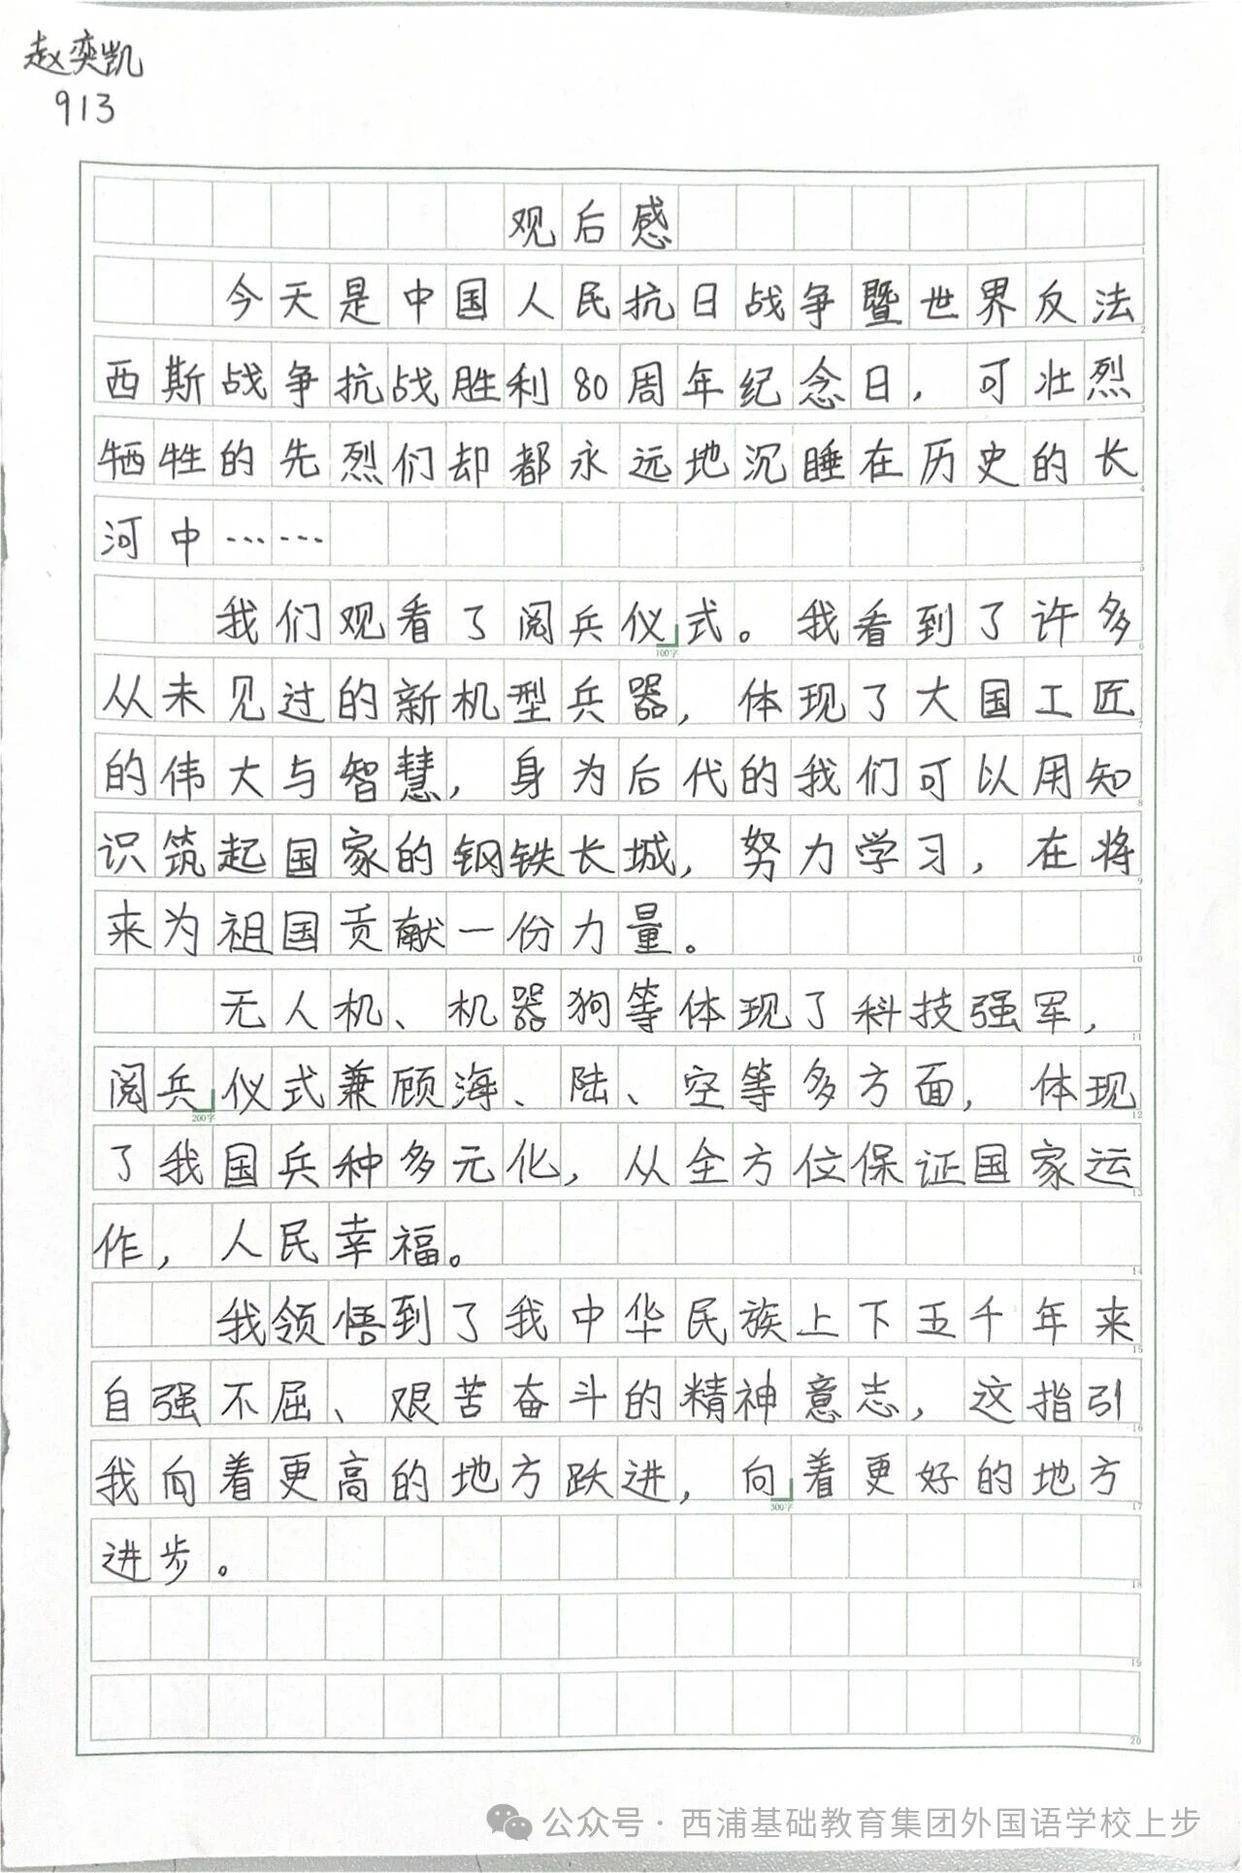 赵奕凯
913
观后感
今天是中国人民抗日战争暨世界反法
西斯战争抗战胜利80周年纪念日，可壮烈
牺牲的先烈们却都永远地沉睡在历史的长
河中……
我们观看了阅兵仪式。我看到了许多
从未见过的新机型兵器，体现了大国工匠
的伟大与智慧，身为后代的我们可以用知
识筑起国家的钢铁长城，努力学习，在将
来为祖国贡献一份力量。
无人机、机器狗等体现了科技强军，
阅兵仪式兼顾海、陆、空等多方面，体现
了我国兵种多元化，从全方位保证国家运
作，人民幸福。
我领悟到了我中华民族上下五千年来
自强不屈、艰苦奋斗的精神意志，这指引
我向着更高的地方跃进，向着更好的地方
进步。
100字
200字
300字
1
2
3
4
5
6
7
8
9
10
11
12
13
14
15
16
17
18
19
20
公众号·西浦基础教育集团外国语学校上步